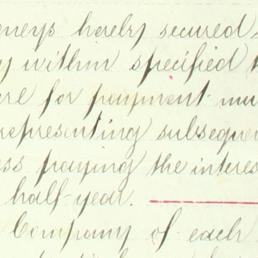 oneys hereby secured
y within specified t
ere for payment mu
representing subseque
ess paying the interes
half-year.
Company of each